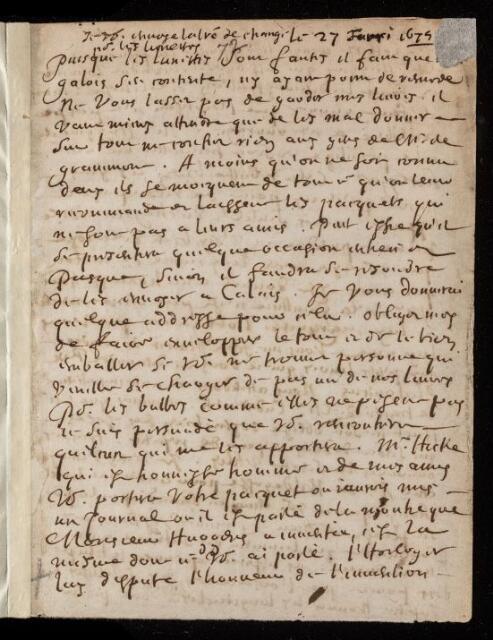 Je vo. envoye la lre de change le 27 1675
po. les lunettes
Puisque les lunettes sont faites il faut que
galois s'en contente, n'y ayant point de remede
Ne vous lasser pas de garder mes livres il
vaut mieux attendre que de les mal donner
Sur tout ne confier rien aux gens de Mr de
grammont. A moins qu'on ne soit connu
deus ils se moquent de tout ce qu'on leur
recommande et laissent les pacquets qui
ne sont pas a leurs amis. Peut estre qu'il
se presentera quelque occasion entre cy et
Pasque, sinon il faudra se resoudre
de les envoyer a Calais. Je vous donnerai
quelque addresse pour cela. obliger moy
de faire envelopper le tout et de le bien
emballer si vo. ne trouvez personne qui
vueille se charger de pas un de nos livres
Po. les balles comme elles ne pesent pas
je suis persuadé que vo. rencontrera
quelcun qui me les apportera. Mr. Hicke
qui est honneste homme et de mes amis
vo. portera votre pacquet ou j'aurois mis
un Journal ou il est parlé de la montre que
Monsieur Huggens a inventée, c'est la
mesme dont je vo. ai parlé. l'Horloger
luy dispute l'honneur de l'invention